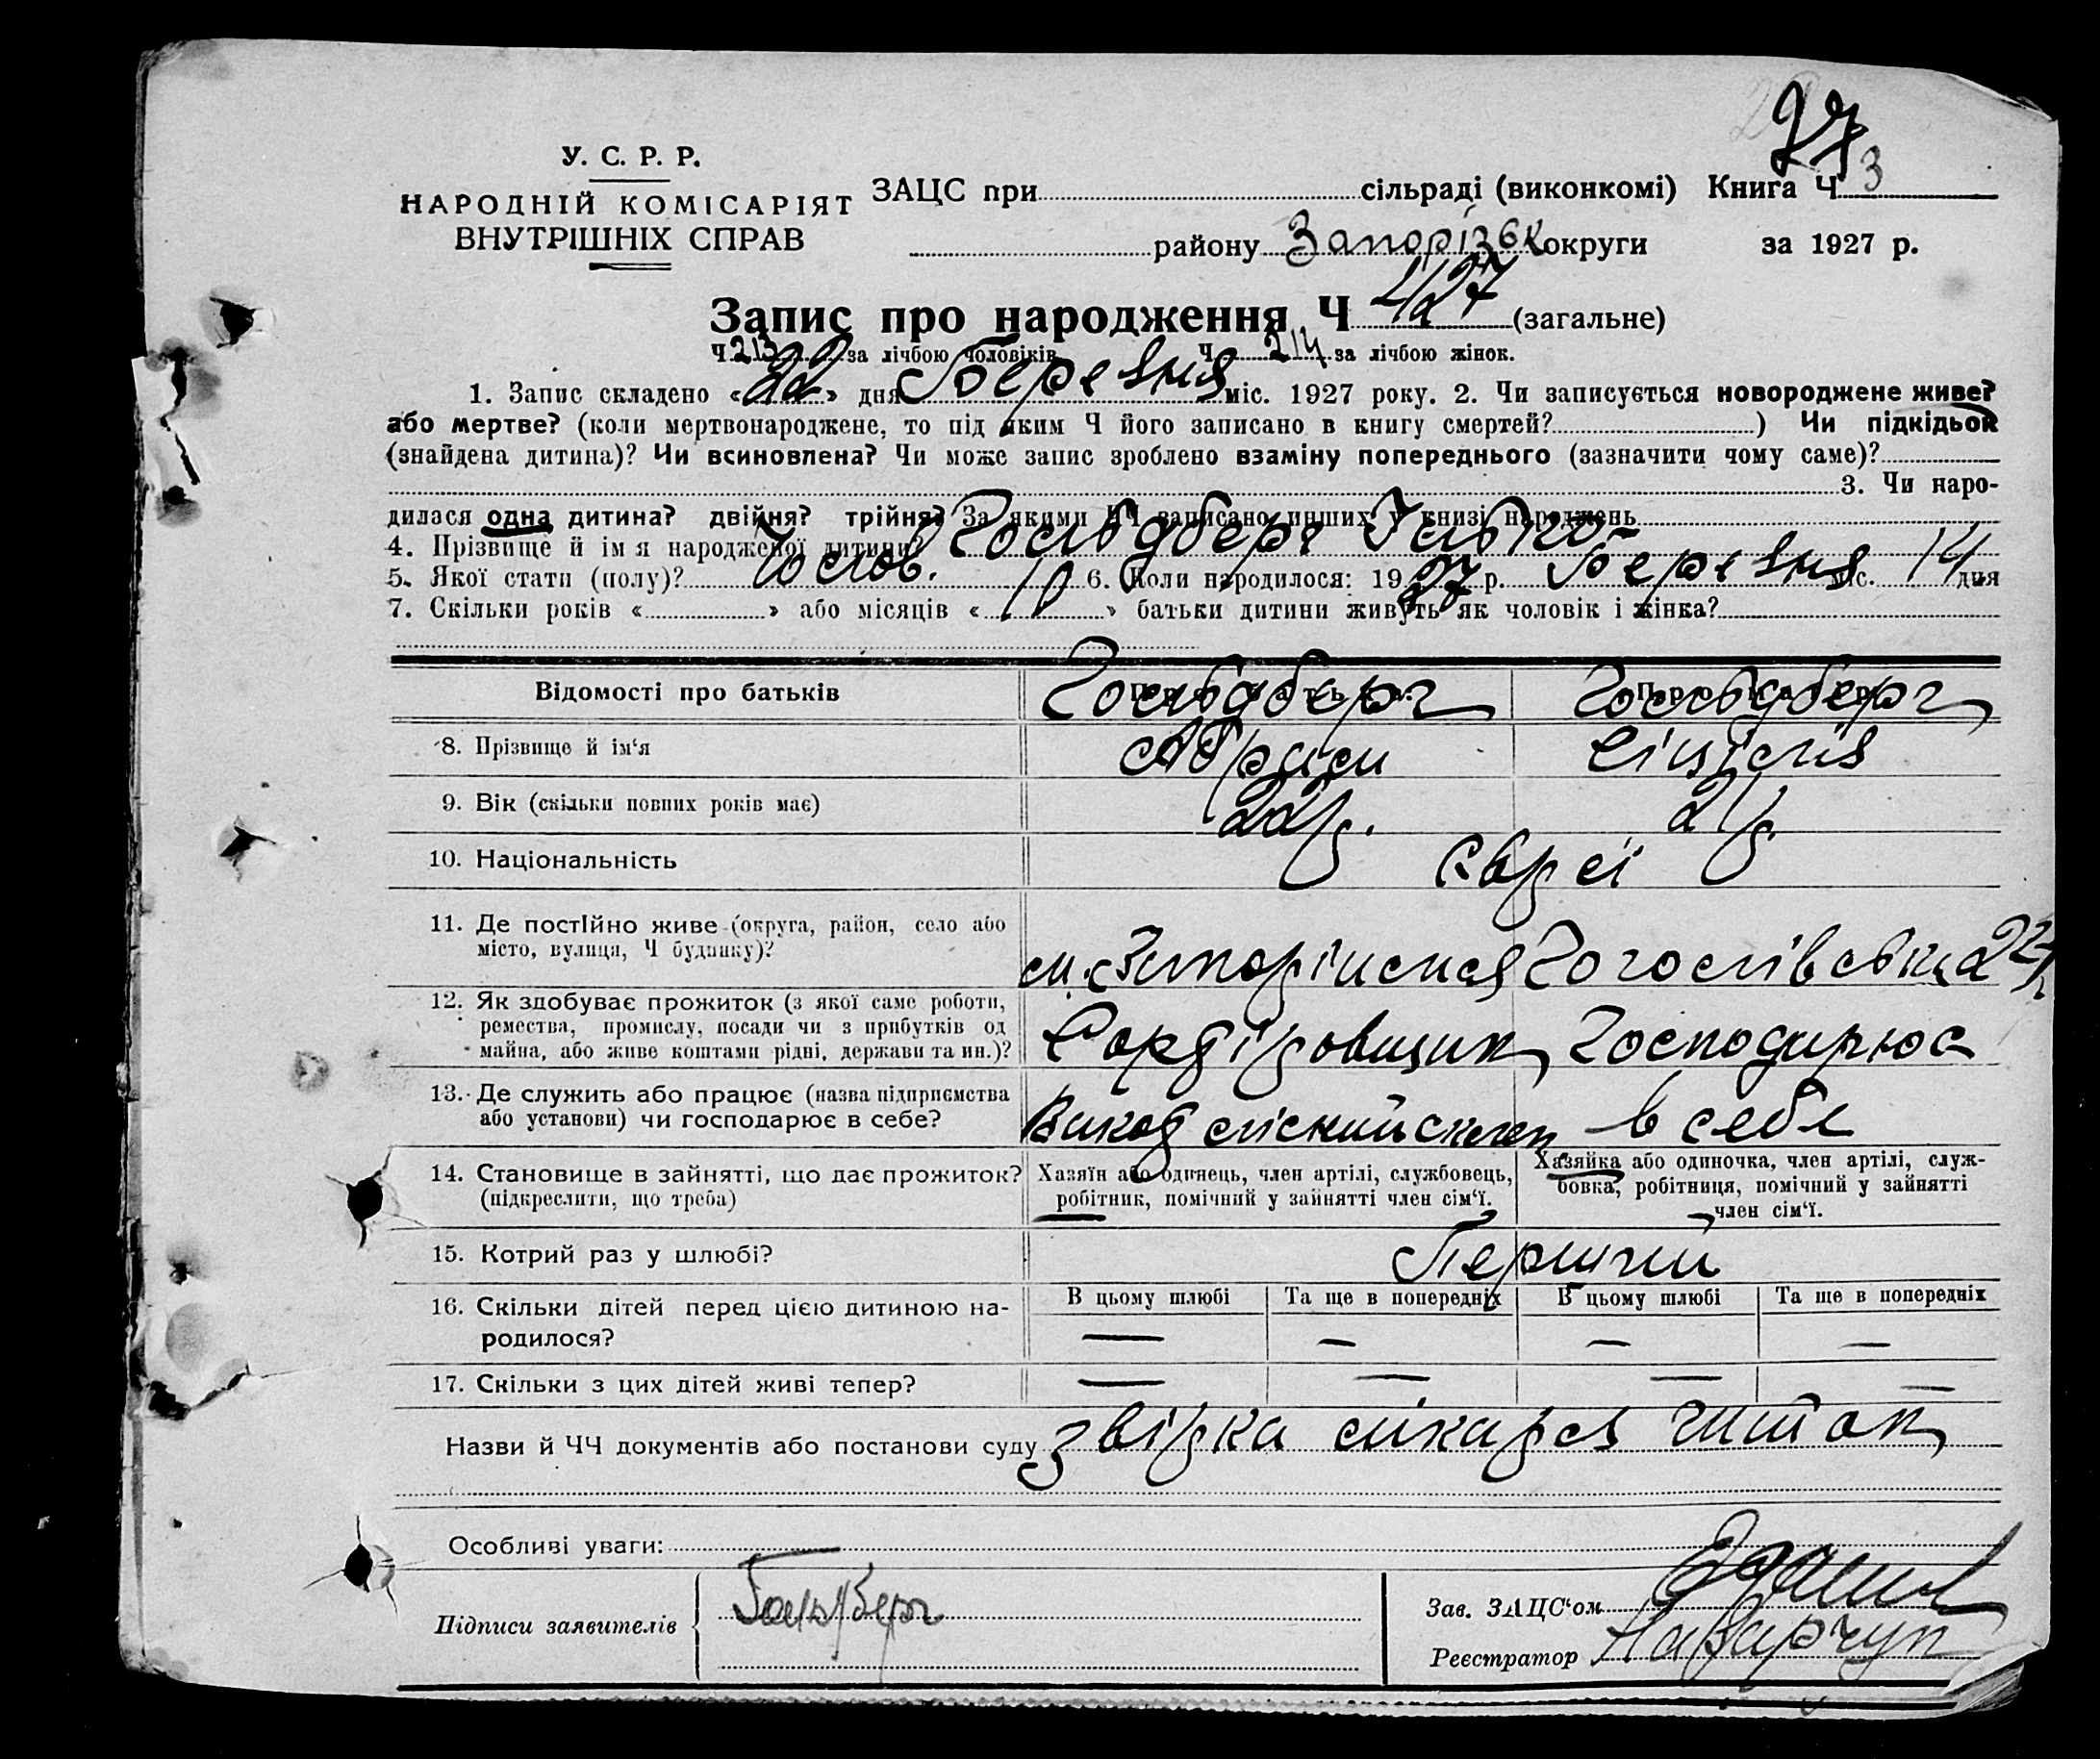 27
У. С. Р. Р.
НАРОДНІЙ КОМІСАРІЯТ
ВНУТРІШНІХ СПРАВ
ЗАЦС при сільраді (виконкомі) Книга Ч 3
району Запорізьк округи за 1927 р.
Запис про народження Ч 427 (загальне)
Ч 213 за лічбою чоловіків Ч 214 за лічбою жінок.
1. Запис складено «22» дня Березня міс. 1927 року. 2. Чи записується новороджене живе?
або мертве? (коли мертвонароджене, то під яким Ч його записано в книгу смертей? ) Чи підкідьок
(знайдена дитина)? Чи всиновлена? Чи може запис зроблено взаміну попереднього (зазначити чому саме)?
3. Чи наро-
дилася одна дитина? двійня? трійня? За якими ЧЧ записано инших у книзі народжень
4. Прізвище й ім'я народженої дитини? Гольдберг
5. Якої стати (полу)? Чолов. 6. Коли народилося: 1927 р. Березня міс. 14 дня
7. Скільки років « » або місяців « 10 » батьки дитини живуть як чоловік і жінка?
Відомості про батьків
Гольдберг Гольдберг
8. Прізвище й ім'я Абрам Цицілія
9. Вік (скільки повних років має) 22 р. 21 р.
10. Національність Євреї
11. Де постійно живе (округа, район, село або
місто, вулиця, Ч будинку)?
м. Запоріжжя Гоголівська 22
12. Як здобуває прожиток (з якої саме роботи,
ремества, промислу, посади чи з прибутків од
майна, або живе коштами рідні, держави та ин.)?
Сортіровщик Господарює
13. Де служить або працює (назва підприємства
або установи) чи господарює в себе?
в себе
14. Становище в зайнятті, що дає прожиток?
(підкреслити, що треба)
Хазяїн або одинець, член артілі, службовець,
робітник, помічний у зайнятті член сім'ї.
Хазяйка або одиночка, член артілі, служ-
бовка, робітниця, помічний у зайнятті
член сім'ї.
15. Котрий раз у шлюбі? Перший
16. Скільки дітей перед цією дитиною на-
родилося?
В цьому шлюбі Та ще в попередніх В цьому шлюбі Та ще в попередніх
— — — —
17. Скільки з цих дітей живі тепер? — — — —
Назви й ЧЧ документів або постанови суду довірка лікаря
Особливі уваги: —
Підписи заявителів Гольдберг
Зав. ЗАЦС'ом
Реєстратор Назарчук